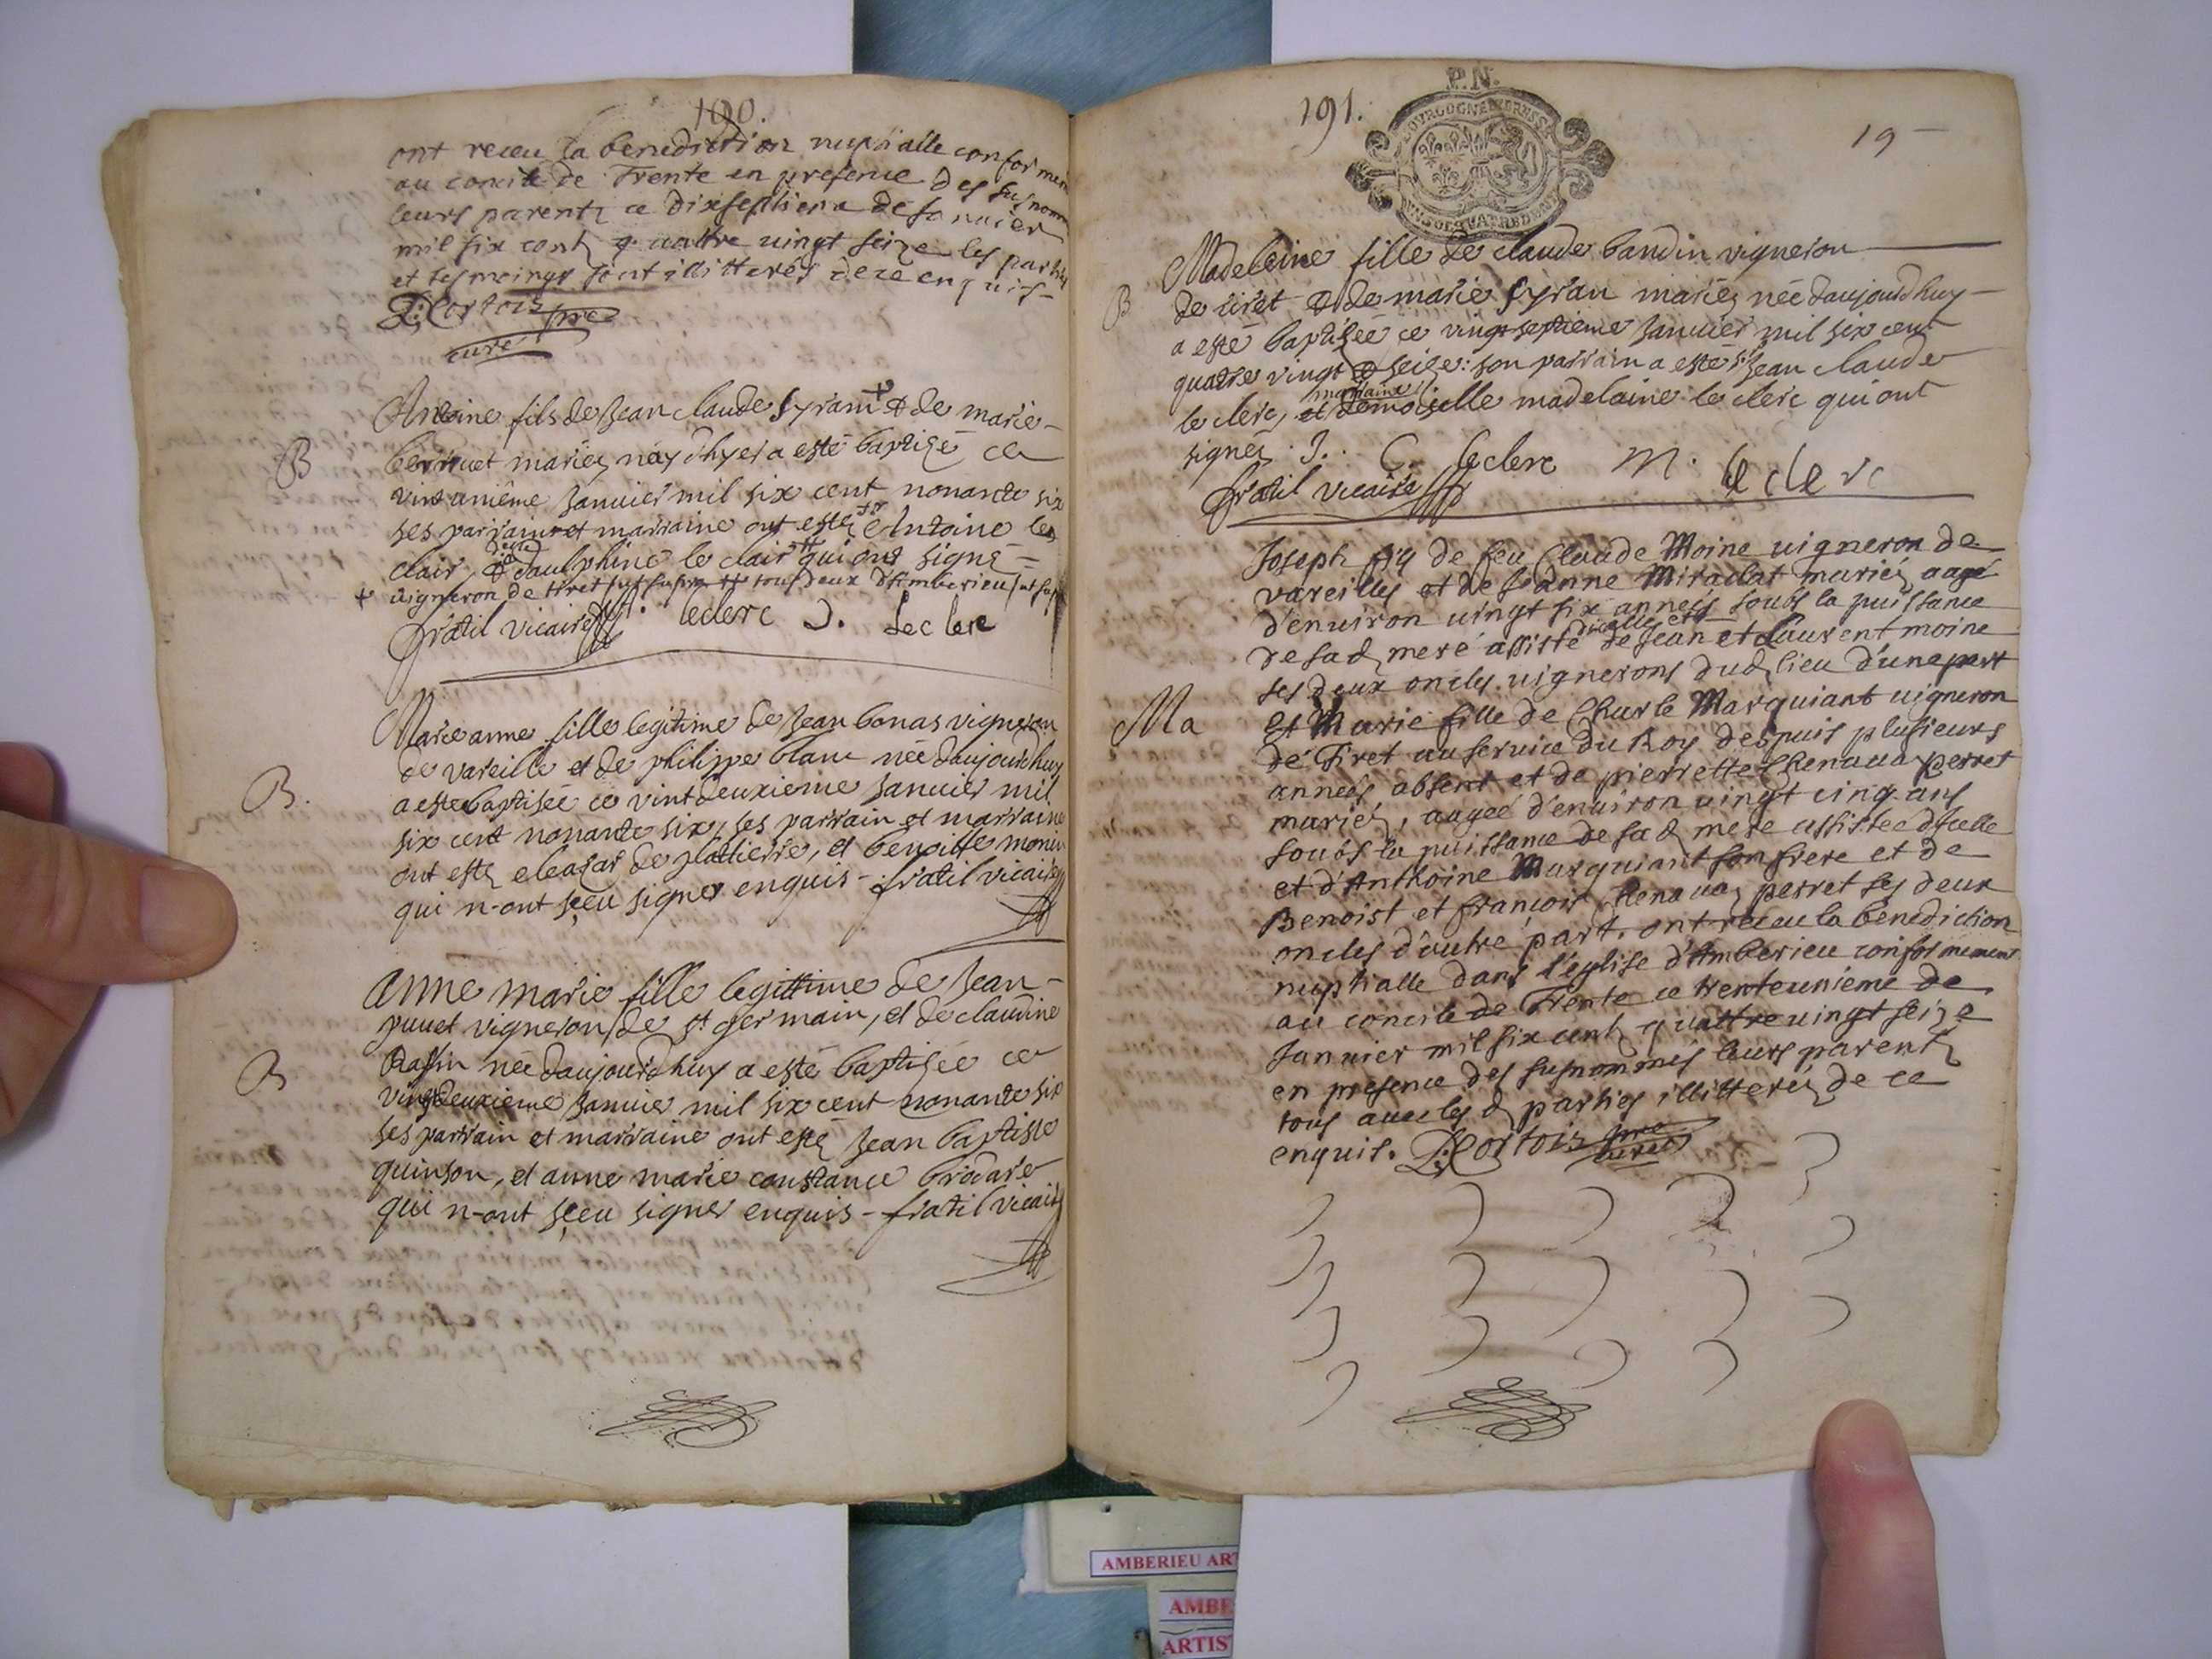 190.
ont receu la benediction nuptialle conformem
au concile de Trente en presence des susnom
leurs parents ce dixseptieme de Januier
mil six cents quattre uingt seize les parties
et tesmoings sont illitterés de ce enquis -
D: Cortois pre
curé
Antoine fils de Jean claude Syran + & de marie -
B
berruet mariez, néy d'hyer a esté baptizé ce
vint unième Januier mil six cent nonante six
ses parrain et marraine ont estez Antoine le
clair, & daulphine le clair ++ qui ont signé -
+ uigneron de tiret ++ tous deux d'Amberieu
fratil vicaire leclerc D. Leclerc
Marieanne fille legitime de Jean bonas vigneron
de vareille et de philippe blanc née d'aujourd'huy
B.
a esté baptisée ce vint deuxieme Januier mil
six cent nonante six, ses parrain et marraine
ont estez eleazar de plattierre, et benoitte monin
qui n-ont sçeu signer enquis - fratil vicaire
Anne marie fille legittime de Jean -
puuet vigneron de st germain, et de claudine
B
née d'aujourd'huy a esté baptisée ce
vingdeuxieme Januier mil six cent nonante six
ses parrain et marraine ont estez Jean baptiste
quinson, et anne marie constance brodare
qui n-ont sçeu signer enquis - fratil vicaire
191.
P.N.
BOVRGOGNE BRESSE
19
Madeleine fille de claude baudin vigneron
B
de tiret & de marie Syran mariez née d'aujourd'huy -
a esté baptisée ce vingt septieme Januier mil six cent
quatre vingt & seize: son parrain a esté sr Jean claude
marraine
le clerc, et demoiselle madelaine le clerc qui ont
signéz J. C. leclerc M. le clerc
fratil vicaire
Joseph fils de feu Claude Moine uigneron de
vareilles et de Jeanne Miraillat mariés, aagé
d'enuiron uingt six années soubs la puissance
d'icelle et
de sad. mere assisté de Jean et Laurent moine
ses deux oncles uignerons dud. lieu d'une part
Ma
et Marie fille de Charle Marquiant uigneron
de Tiret au seruice du Roy despuis plusieurs
années absent et de pierrette Chenauaz perret
mariés, aagée d'enuiron uingt cinq ans
soubs la puissance de sad. mere assistée d'icelle
et d'Anthoine Marquiant son frere et de
Benoist et françois Chenauaz perret ses deux
oncles d'autre part. ont receu la benediction
nuptialle dans l'eglise d'Amberieu conformement
au concile de Trente ce trenteunieme de
Januier mil six cents quattre uingt seize
en presence des susnommés leurs parents
tous auec les d. parties illitterés de ce
enquis. D: Cortois pre
curé
AMBERIEU ART
AMBE
ARTIS